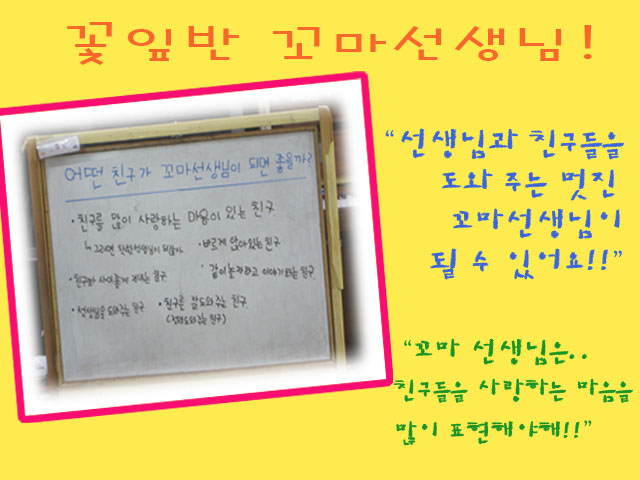 꽃잎반 꼬마선생님!
어떤 친구가 꼬마선생님이 되면 좋을까?
• 친구를 많이 사랑하는 마음이 있는 친구
• 바르게 앉아있는 친구
• 친구와 사이좋게 지내는 친구
• 같이놀자라고 이야기하는 친구
• 선생님을 도와주는 친구
• 친구를 잘 도와주는 친구
“선생님과 친구들을
도와 주는 멋진
꼬마선생님이
될 수 있어요!!”
“꼬마 선생님은..
친구들을 사랑하는 마음을
많이 표현해야해!!”